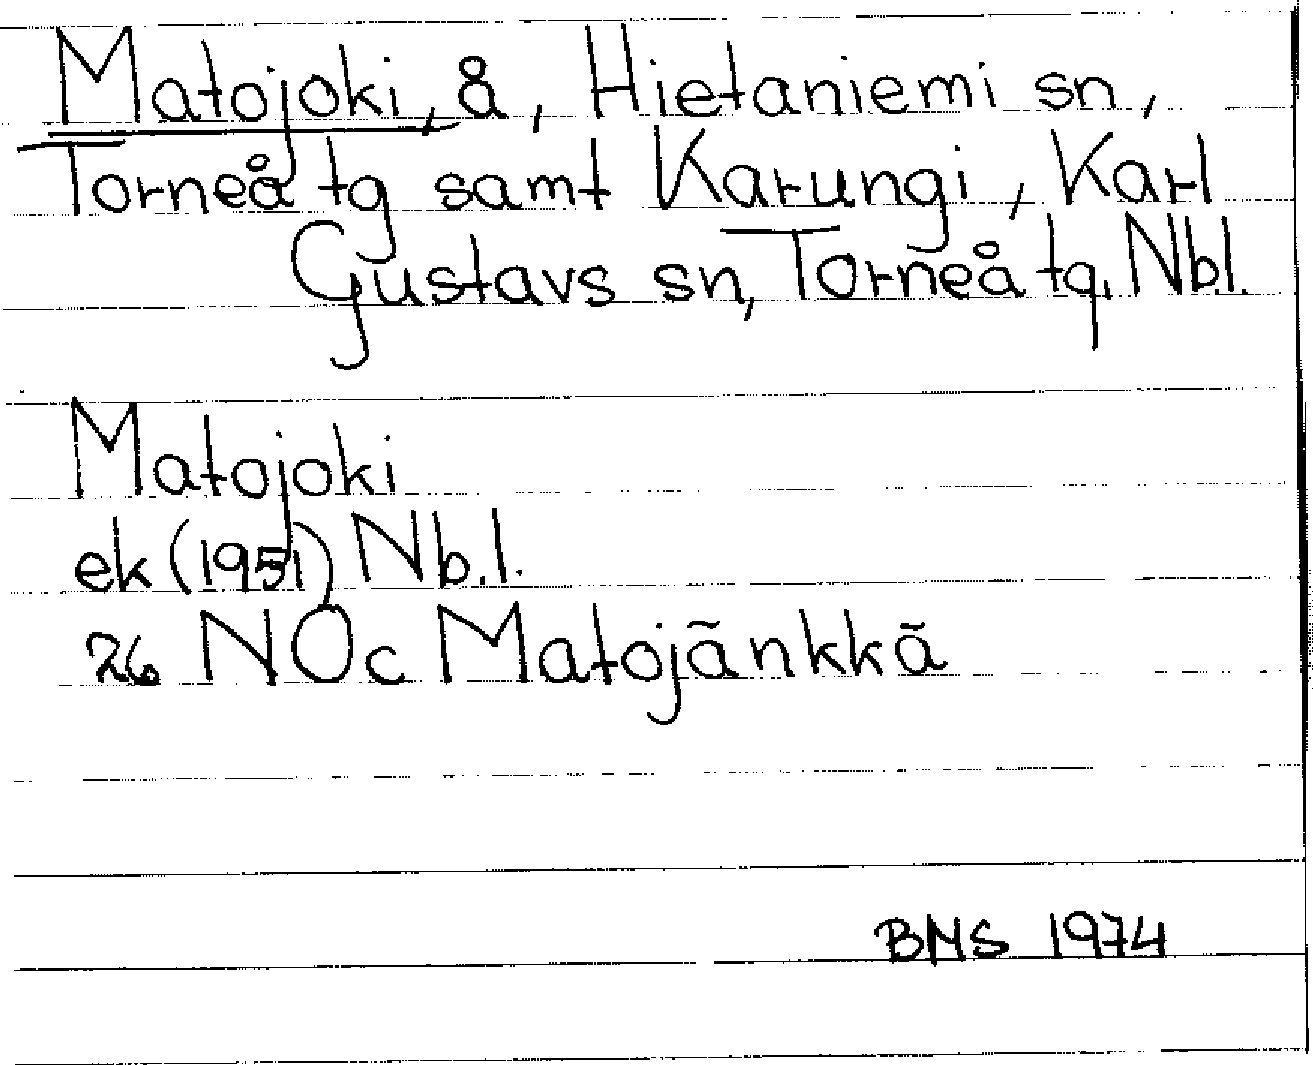 Matojoki, å, Hietaniemi sn,
Torneå tg samt Karungi, Karl
Gustavs sn, Torneå tg, Nb.l.
Matojoki
ek (1951) Nb.l.
26 NOc Matojänkkä
BMS 1974